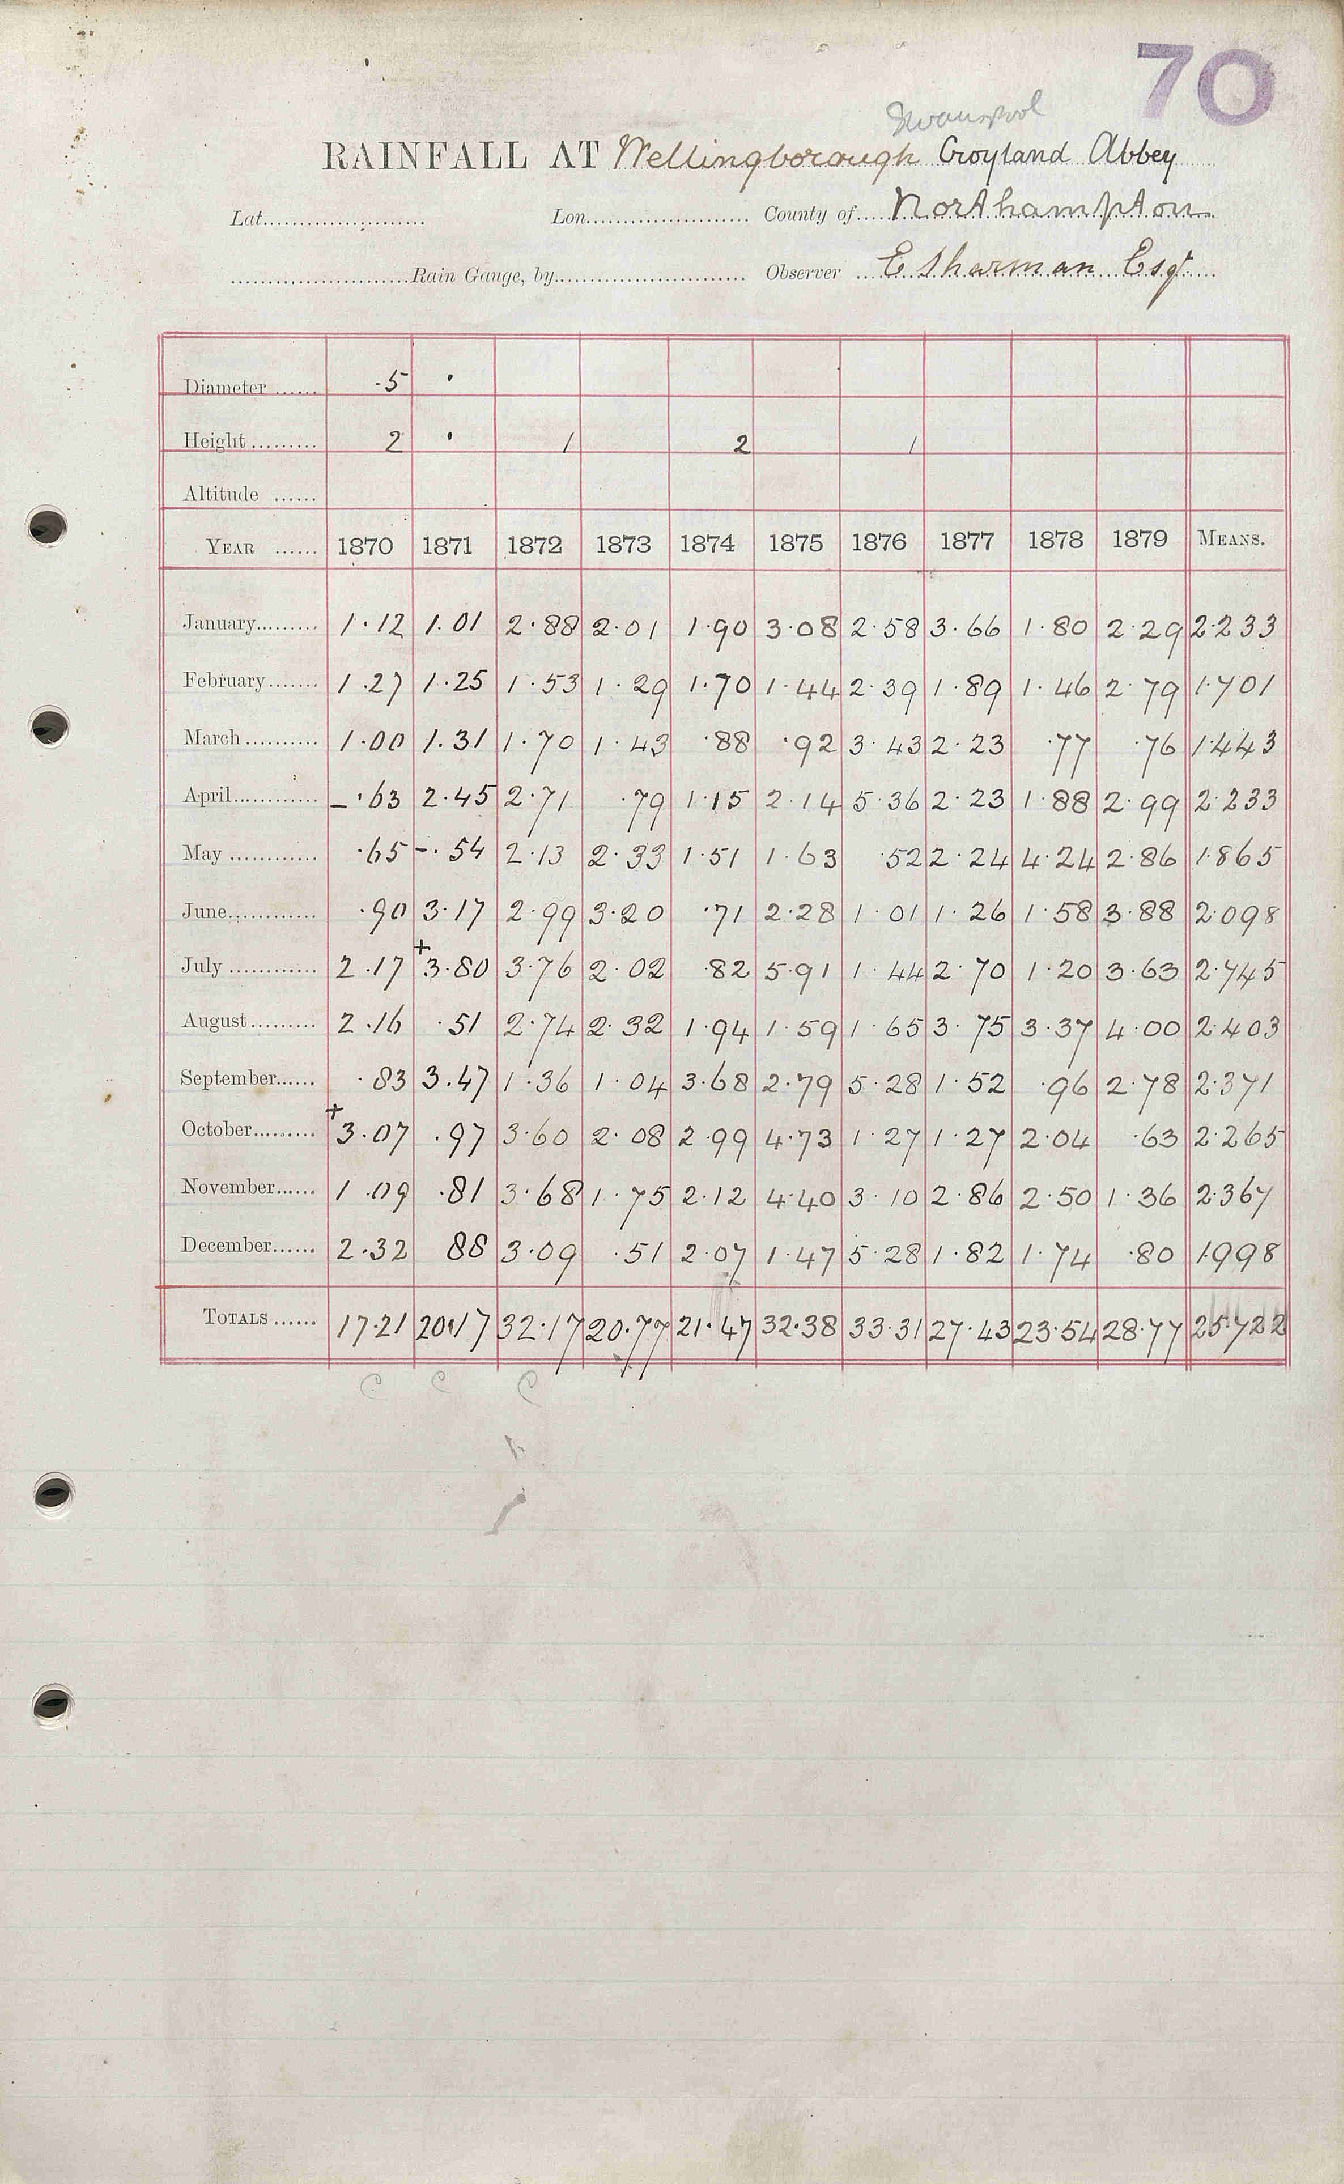 70
Swanspool
RAINFALL AT Wellingborough Croyland Abbey
Lat........................ Lon........................ County of.... Northampton
........................Rain Gauge, by........................ Observer ... E Sharman Esqr
Diameter ...... ·5 ·
Height ......... 2 · 1 2 1
Altitude ......
YEAR ...... 1870 1871 1872 1873 1874 1875 1876 1877 1878 1879 MEANS.
January......... 1·12 1·01 2·88 2·01 1·90 3·08 2·58 3·66 1·80 2·29 2·233
February....... 1·27 1·25 1·53 1·29 1·70 1·44 2·39 1·89 1·46 2·79 1·701
March .......... 1·00 1·31 1·70 1·43 ·88 ·92 3·43 2·23 ·77 ·76 1·443
April............. –·63 2·45 2·71 ·79 1·15 2·14 5·36 2·23 1·88 2·99 2·233
May ............ ·65 –·54 2·13 2·33 1·51 1·63 ·52 2·24 4·24 2·86 1·865
June............. ·90 3·17 2·99 3·20 ·71 2·28 1·01 1·26 1·58 3·88 2·098
July ............ 2·17 +3·80 3·76 2·02 ·82 5·91 1·44 2·70 1·20 3·63 2·745
August......... 2·16 ·51 2·74 2·32 1·94 1·59 1·65 3·75 3·37 4·00 2·403
September...... ·83 3·47 1·36 1·04 3·68 2·79 5·28 1·52 ·96 2·78 2·371
October......... +3·07 ·97 3·60 2·08 2·99 4·73 1·27 1·27 2·04 ·63 2·265
November...... 1·09 ·81 3·68 1·75 2·12 4·40 3·10 2·86 2·50 1·36 2·367
December...... 2·32 88 3·09 ·51 2·07 1·47 5·28 1·82 1·74 ·80 1·998
TOTALS ...... 17·21 20·17 32·17 20·77 21·47 32·38 33·31 27·43 23·54 28·77 25·722
C C C